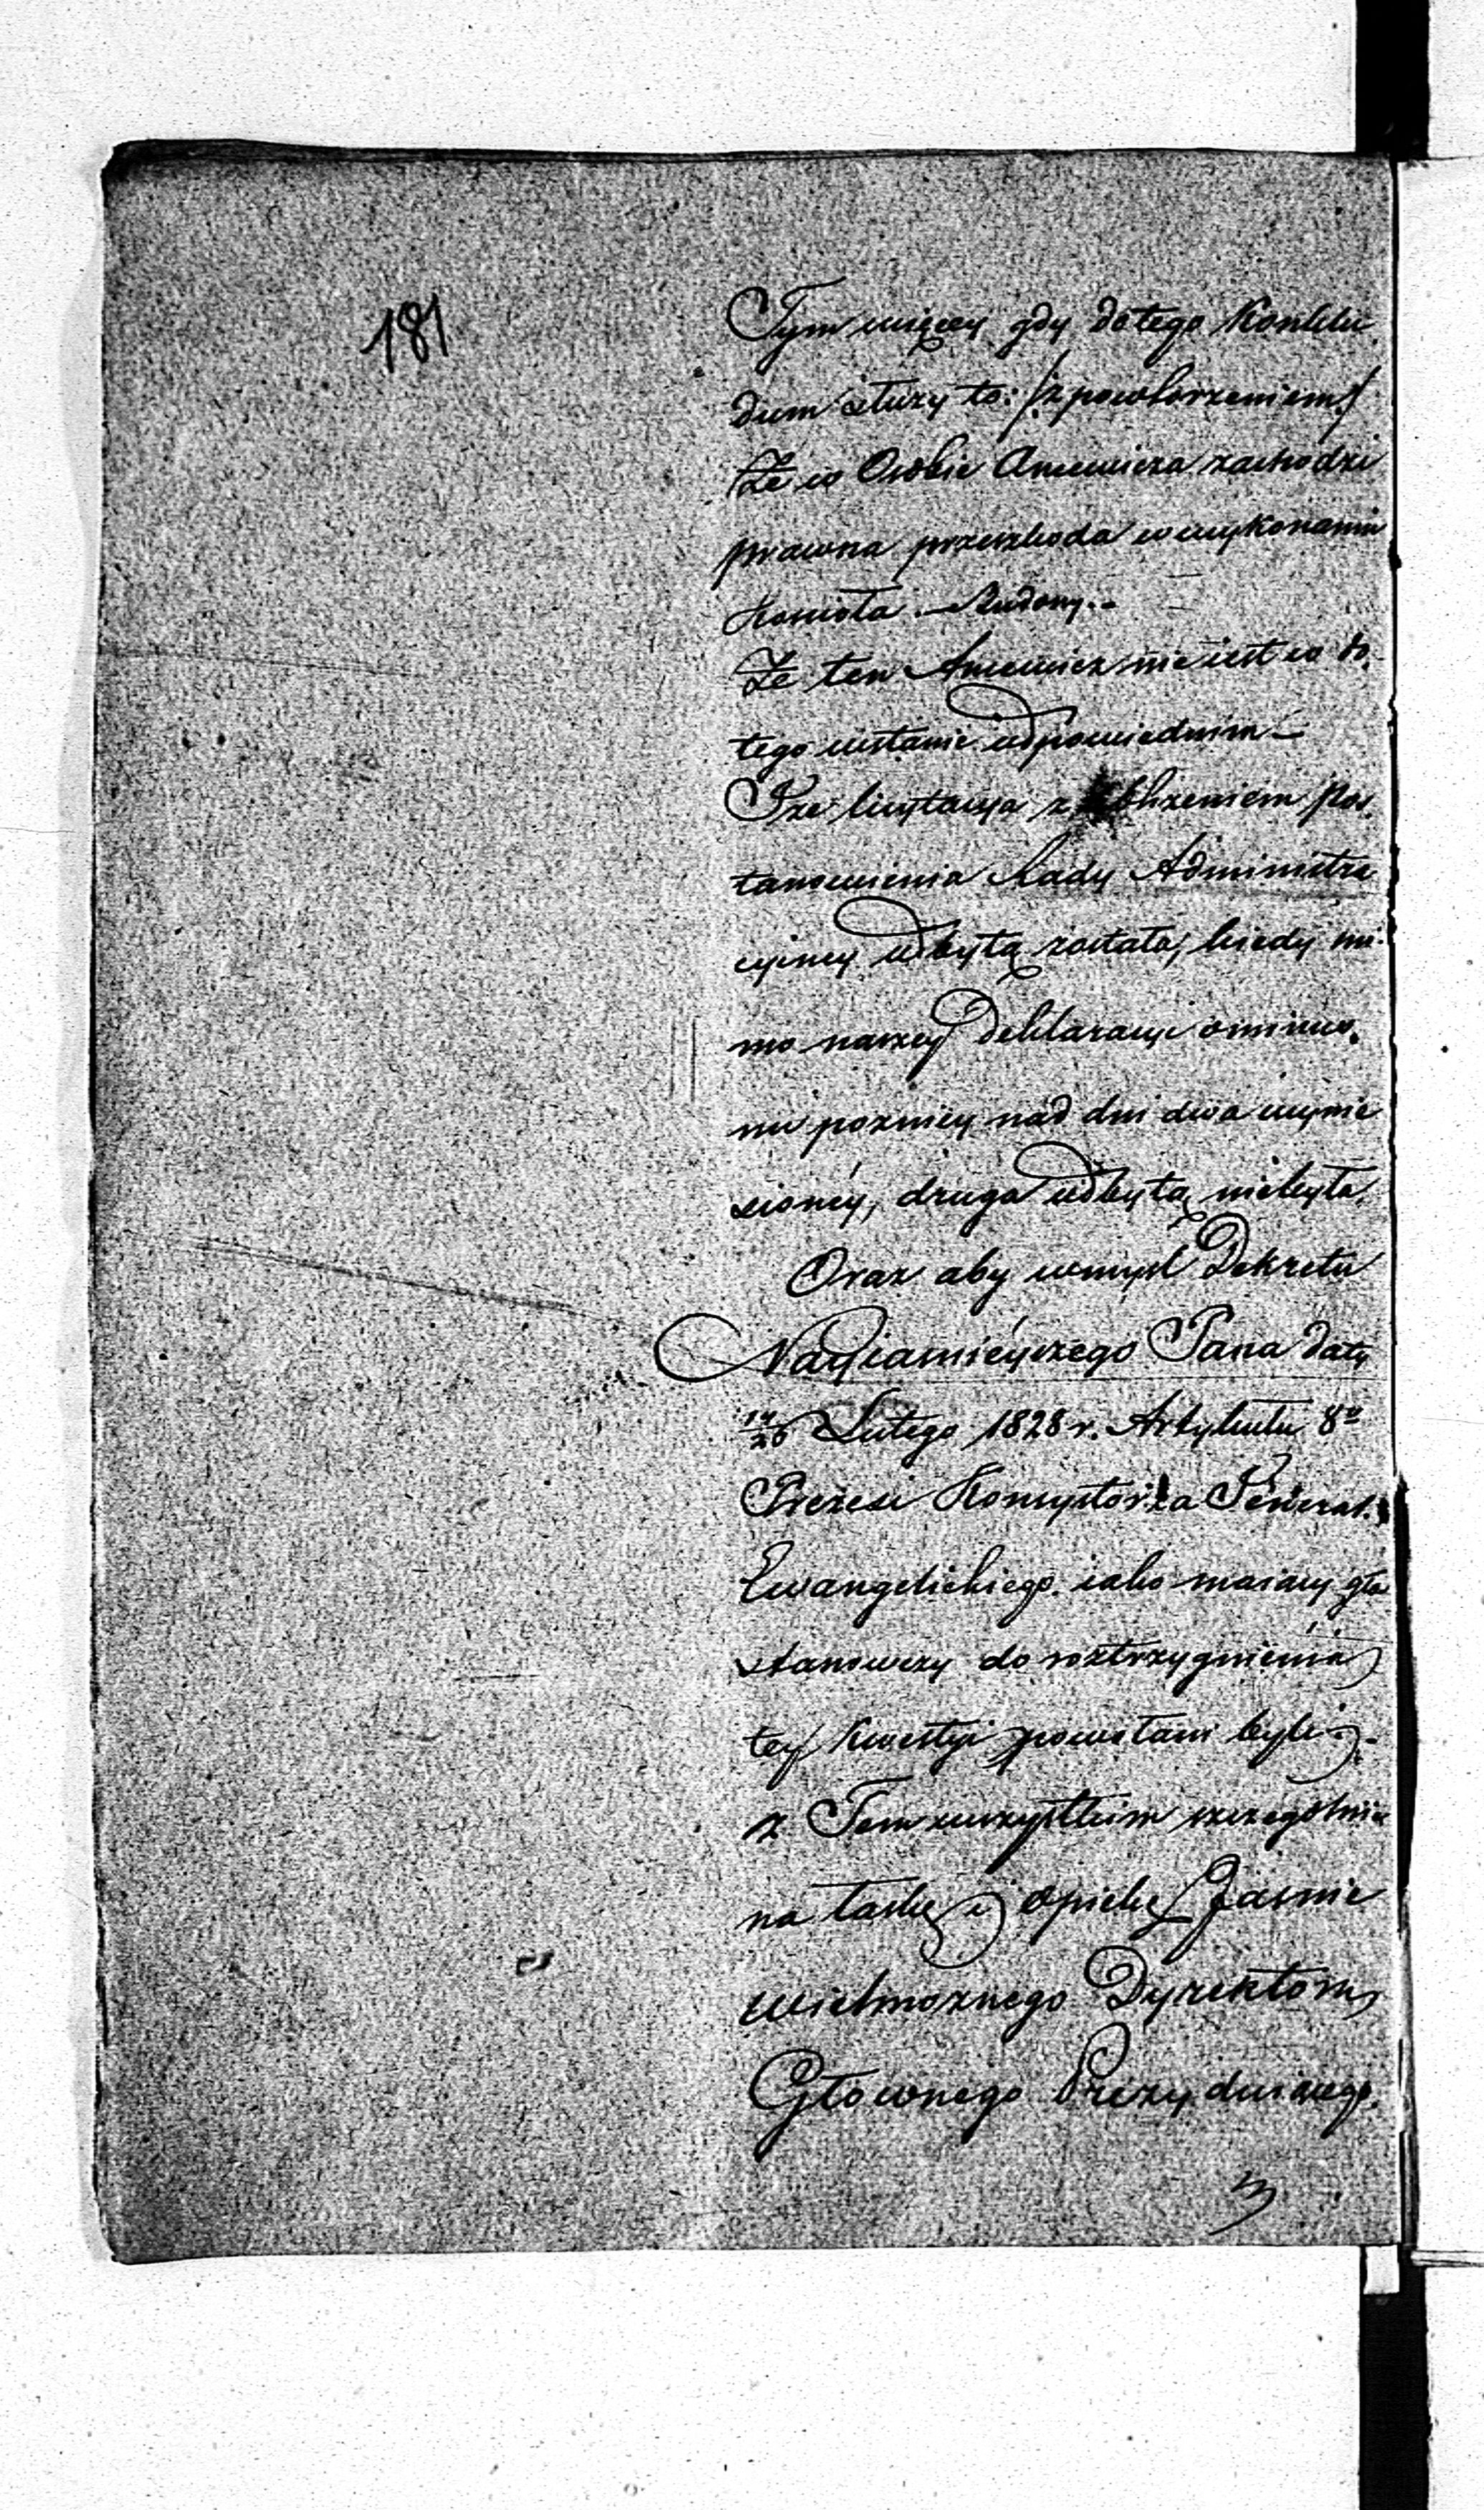 181
Tym więcey gdy do tego Konklu
dum służy to: /:z powtorzeniem:/
Że w Osobie Ancewicza zachodzi
prawna przeszkoda w wykonaniu
Kościoła
Że ten Ancewicz nie iest co do
tego w stanie odpowiednim –
Że licytacya z ubliżeniem pos
tanowienia Rady Administra
cyiney odbytą została, kiedy mi
mo naszey Deklaracyi
nu poźniey nad dni dwa wynie
sioney, druga odbytą niebyła.
Oraz aby w myśl Dekretu
Nayiaśnieyszego Pana daty
14/26 Lutego 1828 r. Artykułu 8º
Prezesi Konsystorza Generał.
Ewangelickiego iako maiący gło
stanowczy do roztrzygnienia
tey kwestyi powołani byli.
z Tem wszystkim szczegolnie
na łaskę i opiekę Jaśnie
Wielmożnego Dyrektora
Głownego Prezyduiącego.
3